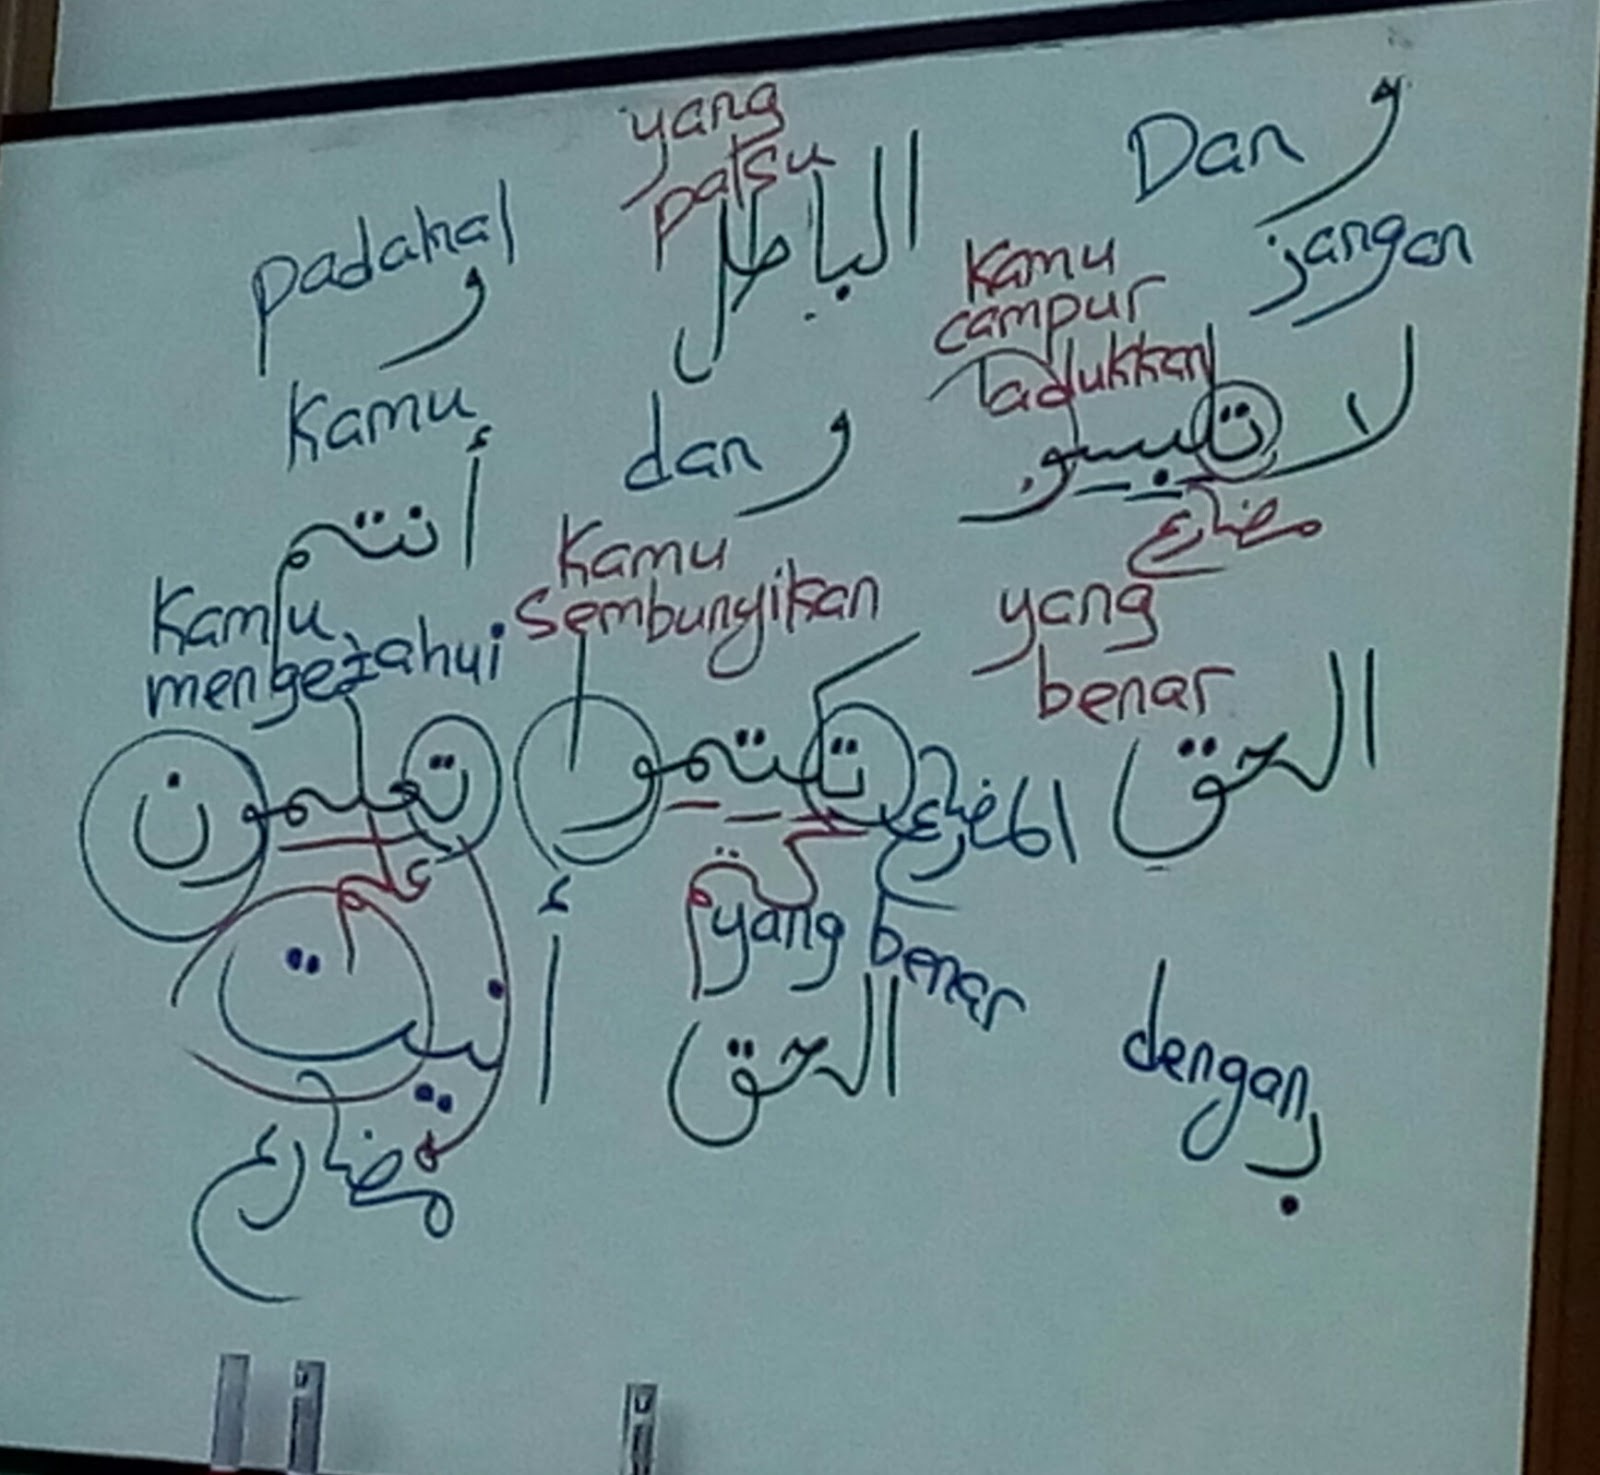 Dan و
jangan
لا
kamu
campur
adukkan
تلبسو
مضارع
yang
benar
الحق
dengan
ب
yang
palsu
الباطل
dan و
Kamu
sembunyikan
تكتمو
المضارع
كتم
yang benar
الحق
padahal
و
Kamu
أنتم
Kamu
mengetahui
تعلمون
علم
أ ن ي ت
مضارع